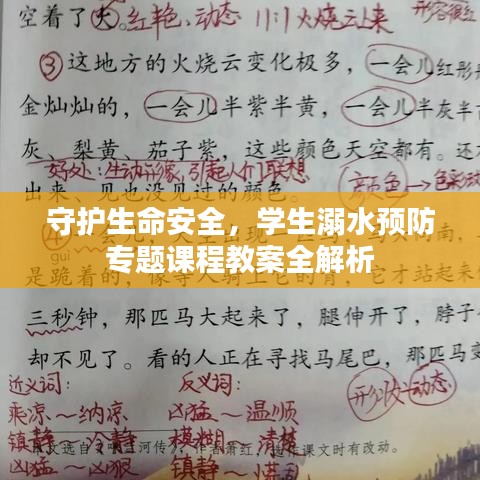 空着了火。红艳、动态 11:11火烧云上来 形容很红
③这地方的火烧云变化极多，一会儿红彤
金灿灿的，一会儿半紫半黄，一会儿半灰半
灰、梨黄、茄子紫，这些颜色天空都有。还
好处：生动形象，引起人们联想
出来、见也没见过的颜色。 颜色→色彩
守护生命安全，学生溺水预防
专题课程教案全解析
gui
是跪着的，像等人骑上它
三秒钟，那匹马大起来了，腿伸开了，脖子
却不见了。看的人正在寻找马尾巴，那匹马变
近义词： 反义词： 形状动态
乘凉～纳凉 凶猛～温顺
镇静～冷静 模糊～清楚
文选自 河传》，作者萧红，选作课文时有改动。
凶猛～凶狠 镇静～